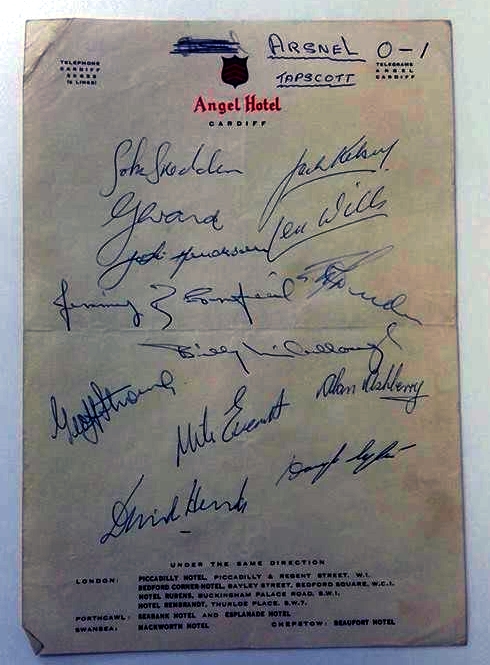 ARSNEL 0-1
TAPSCOTT
TELEPHONE
CARDIFF
TELEGRAMS
ANGEL
CARDIFF
Angel Hotel
CARDIFF
John Snedden
Jack Kelsey
G Ward
Len Wills
Jackie Henderson
Jimmy Bloomfield
Billy McCullough
Geoff Strong
Mike Everitt
Alan Ashberry
David Herd
UNDER THE SAME DIRECTION
LONDON: PICCADILLY HOTEL, PICCADILLY & REGENT STREET, W.1.
BEDFORD CORNER HOTEL, BAYLEY STREET, BEDFORD SQUARE, W.C.1.
HOTEL RUBENS, BUCKINGHAM PALACE ROAD, S.W.1.
HOTEL REMBRANDT, THURLOE PLACE, S.W.7.
PORTHCAWL: SEABANK HOTEL AND ESPLANADE HOTEL.
SWANSEA: MACKWORTH HOTEL CHEPSTOW: BEAUFORT HOTEL